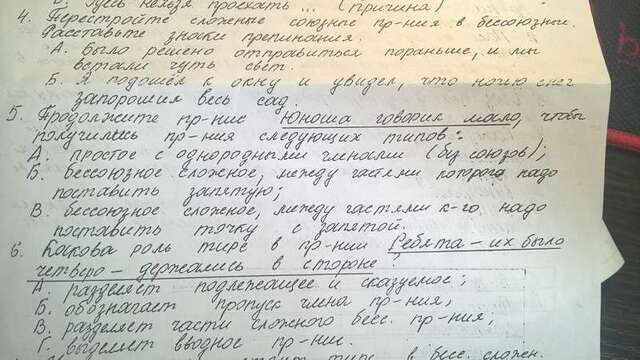 здесь нельзя проехать ... (причина)
4. Перестройте сложные союзные пр-ния в бессоюзны.
Расставьте знаки препинания.
А. Было решено отправиться пораньше, и мы
встали чуть свет.
Б. Я подошёл к окну и увидел, что ночью снег
запорошил весь сад.
5. Продолжите пр-ние Юноша говорил мало, чтобы
получились пр-ния следующих типов:
А. простое с однородными членами (без союзов);
Б. бессоюзное сложное, между частями которого надо
поставить запятую;
В. бессоюзное сложное, между частями к-го надо
поставить точку с запятой.
6. Какова роль тире в пр-нии Ребята – их было
четверо – держались в стороне,
А разделяет подлежащее и сказуемое;
Б. обозначает пропуск члена пр-ния;
В. разделяет части сложного бесс. пр-ния;
Г. выделяет вводное пр-ние.
тире в бес. сложн.